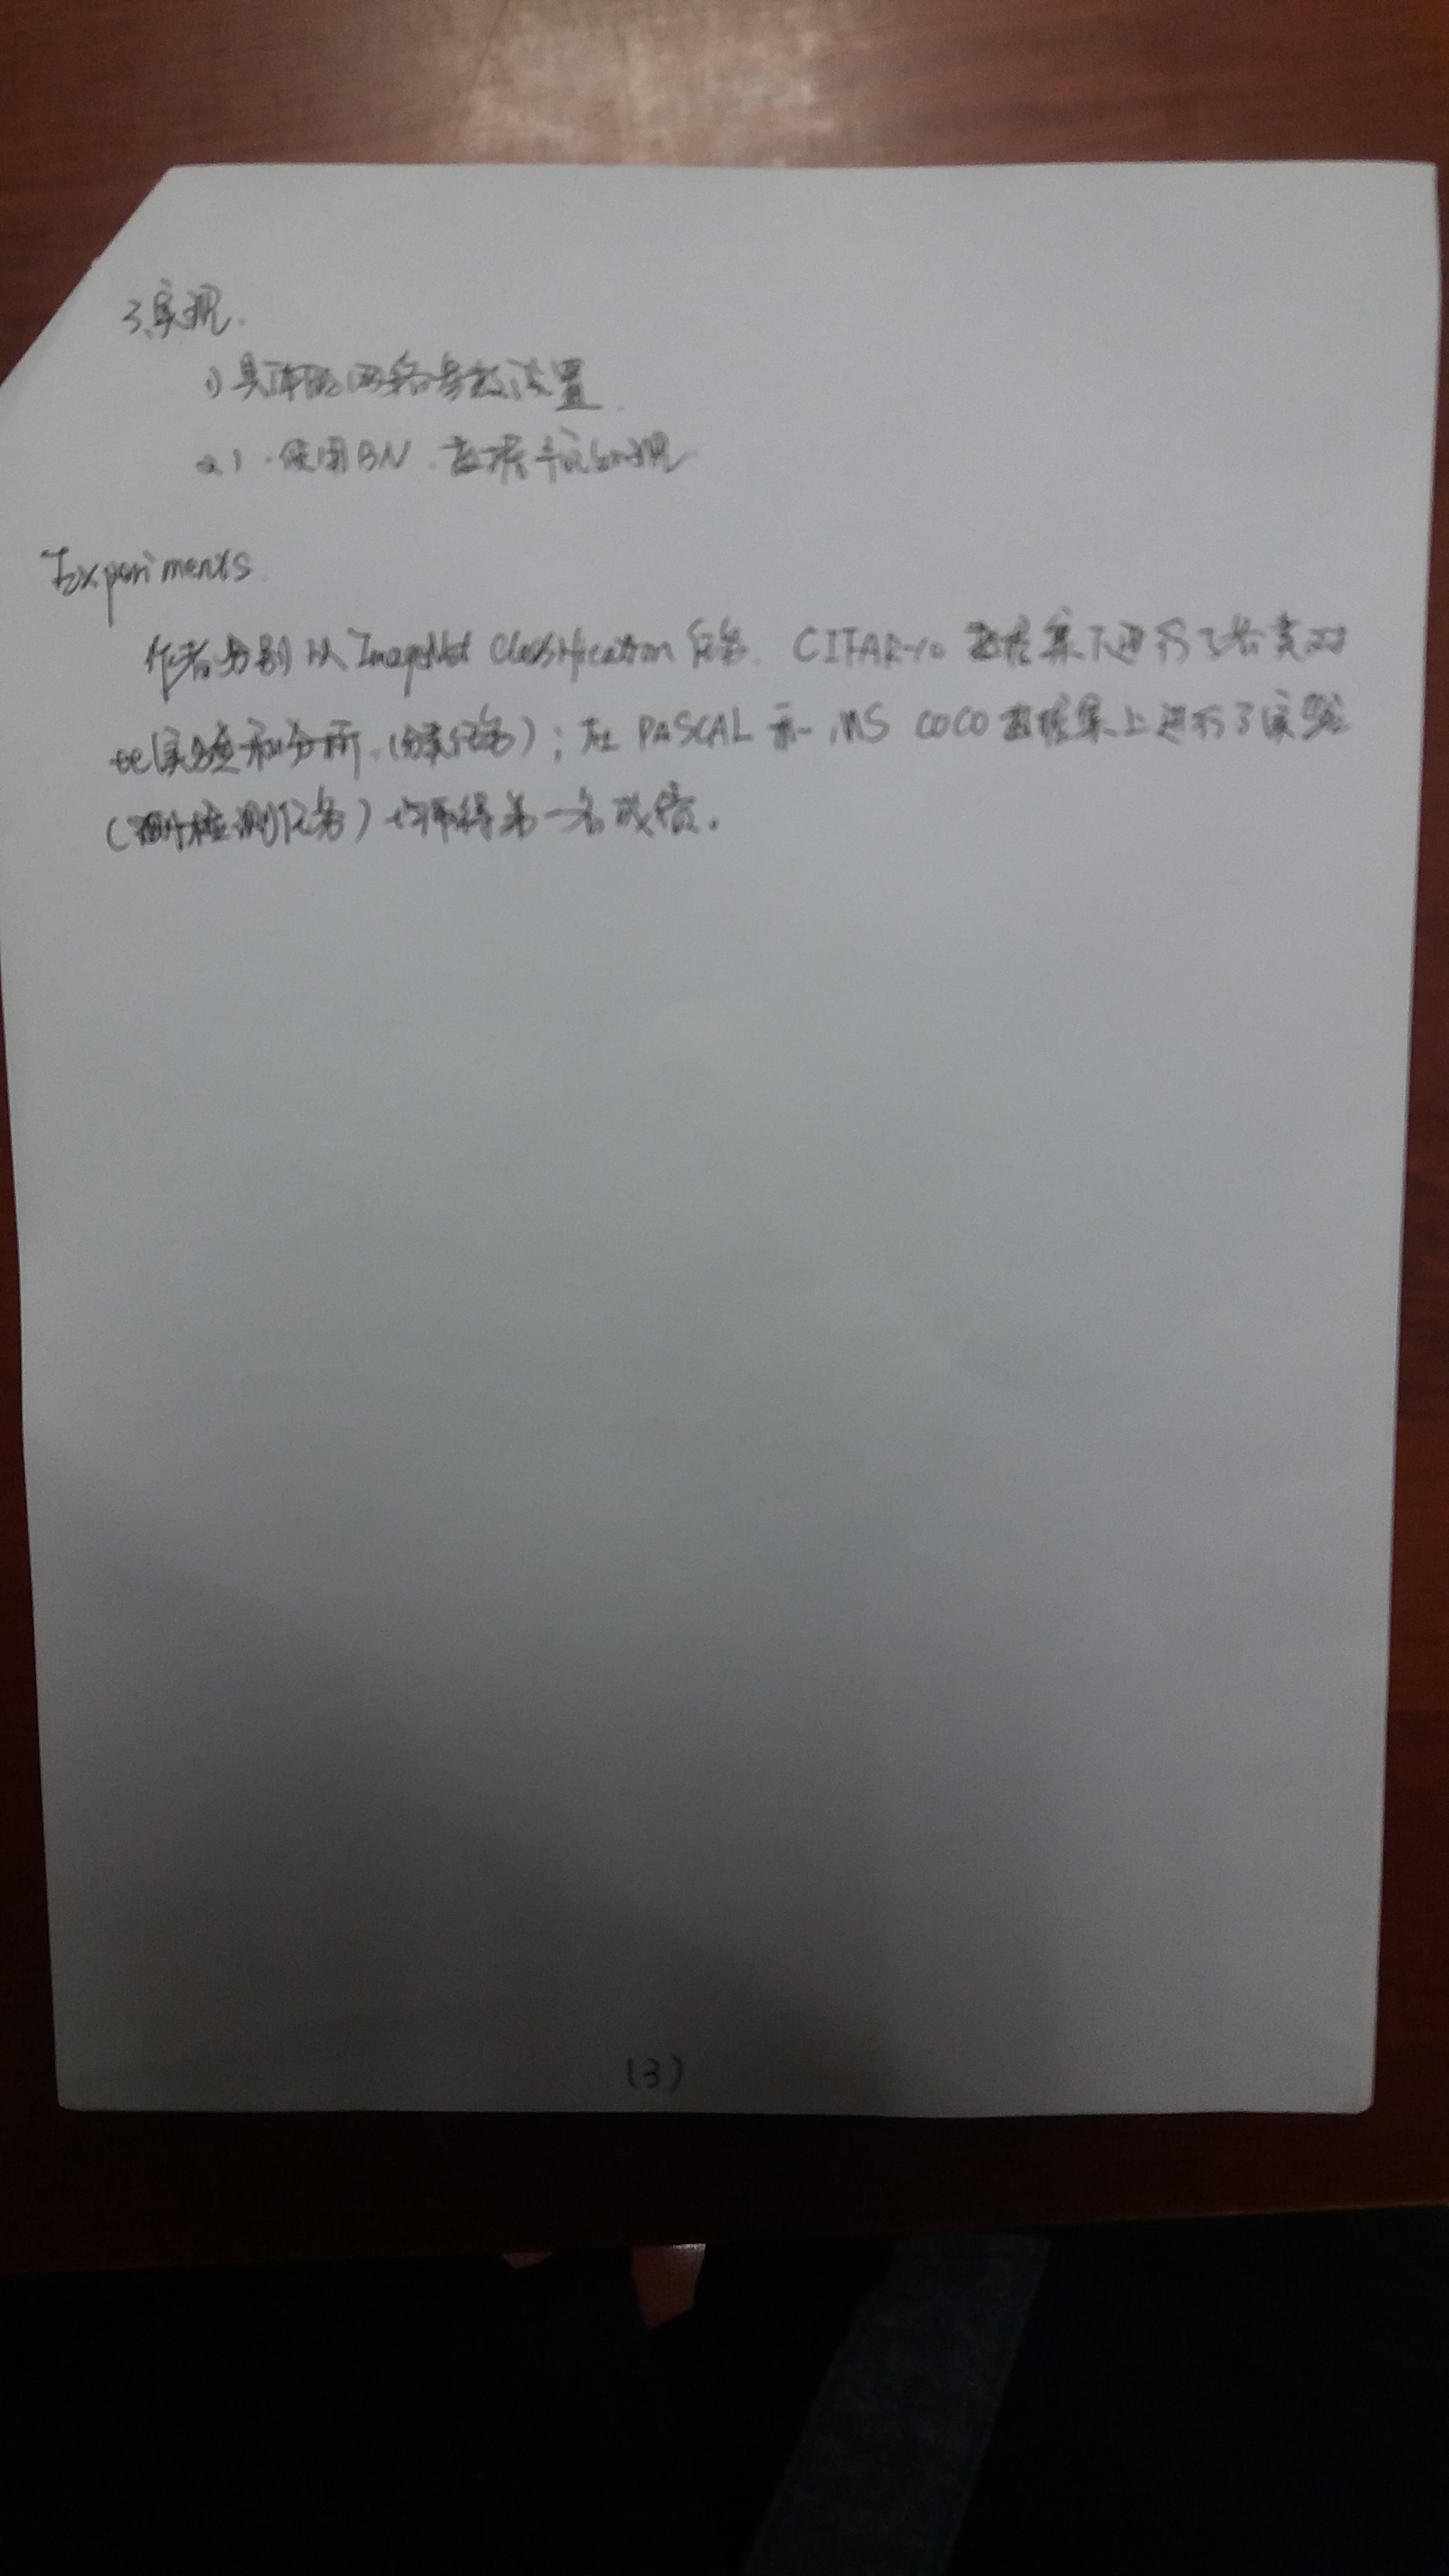 3.实现.
1) 具体的网络参数设置
2). 使用BN. 数据
Experiments.
作者分别从ImageNet Classification任务. CIFAR-10 数据集下进行了各类对
比实验和分析.(分类任务); 在 PASCAL 和 MS COCO 数据集上进行了实验
(检测任务) 均取得第一名成绩.
(3)